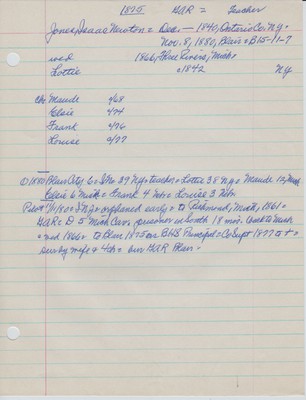 1875 GAR = Teacher
Jones, Isaac Newton = Dec. — 1840, Ontario Co, N.Y. =
Nov. 8, 1880, Blair = B15-1-7
wed 1866, Three Rivers, Mich =
Lottie c1842 NY
chn Maude c/68
Elsie c/74
Frank c/76
Louise c/77
① 1880 Blair City, 6 = I.N. 39 NY = teacher = Lottie 38 NY = Maude 12, Mich
Elsie 6 Mich = Frank 4 Neb = Louise 3 Neb
Pilot 11/11/80 = I.N.J = orphaned early = to Mich, 1861 =
GAR = D 5 Mich Cav = prisoner in South 18 mos. back to Mich
= wed 1866 = to Blair 1875 as BHS Principal = Co Supt 1877 to +
surv by wife & 4 ch = bur GAR Blair =